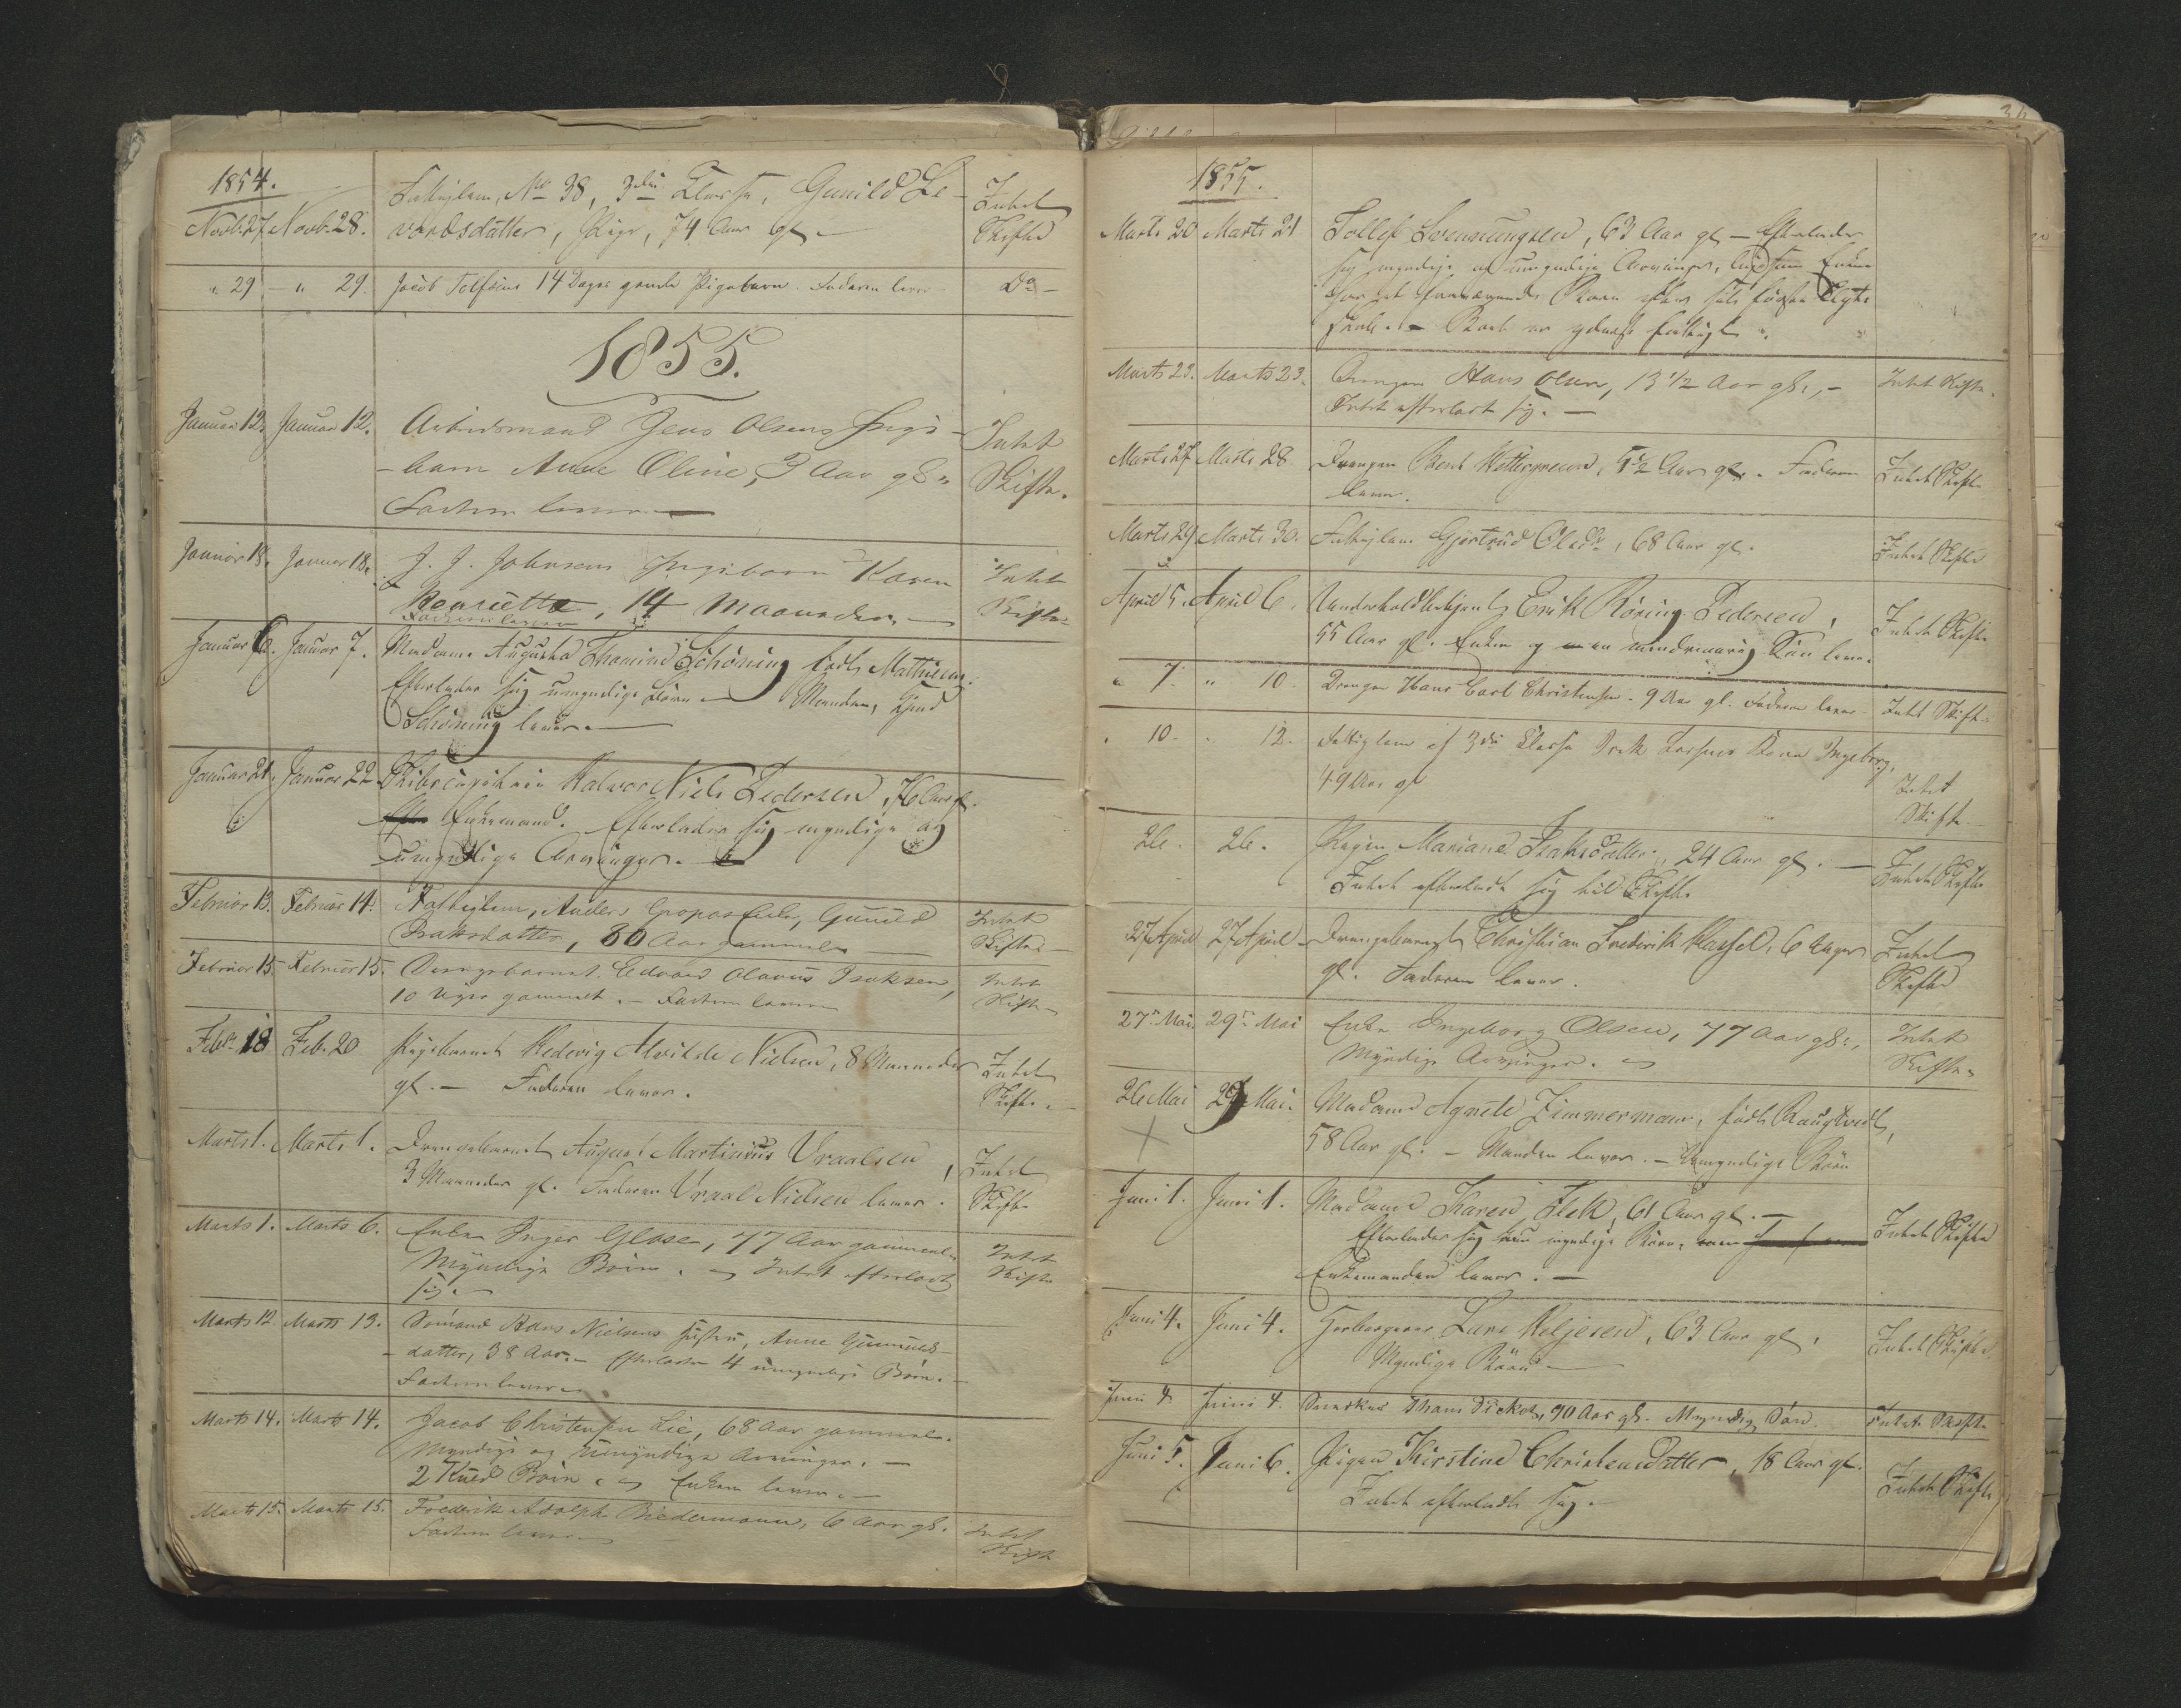 1854.
Novb. 27. Novb. 28. Fattiglem, No 38, 3die Classe, Gunild Le-
vordsdatter, Pige, 74 Aar gl. Intet Skifte
" 29 – " 29. Jacob Tolfsens 14 Dage gamle Pigebarn. Faderen lever – Do –
1855.
Januar 12. Januar 12. Arbeidsmand Jens Olsens Pige-
barn Anne Oline, 3 Aar gl. Intet
Faderen lever. – Skifte.
Januar 18. Januar 18. J. J. Johnsens Pigebarn Karen Intet
Henriette, 14 Maaneder. – Skifte
Faderen lever
Januar 6. Januar 7. Madame Augusta Schöning født Mathiesen.
Efterlader sig umyndige Børn – Manden,
Schöning lever. –
Januar 21. Januar 22. Skibscapitain Halvor Niels Pedersen, 76 Aar gl.
Enkemand. Efterlader sig myndige og
umyndige Arvinger.
Februar 13. Februar 14. Fattiglem, Anders Gropos Enke, Gunild Intet
Isaksdatter, 80 Aar gammel Skifte
Februar 15. Februar 15. Drengebarnet Edvard Olavus Isaksen, Intet
10 Uger gammelt. – Faderen lever Skifte
Feb. 18 Feb. 20 Pigebarnet Hedevig Alvilde Nielsen, 8 Maaneder Intet
gl. – Faderen lever. Skifte.
Marts 1. Marts 1. Drengebarnet August Martinius Vraalsen, Intet
3 Maaneder gl. Faderen Vraal Nielsen lever. Skifte
Marts 1. Marts 6. Enke Inger Glose, 77 Aar gammel Intet
Myndige Børn. – Intet efterladt Skifte
sig. –
Marts 12. Marts 13. Sömand Hans Nielsens Hustru, Anne Gunnuls-
datter, 38 Aar. – Efterlader 4 umyndige Børn. –
Faderen lever
Marts 14. Marts 14. Jacob Christensen Lie, 68 Aar gammel.
Myndige og umyndige Arvinger. –
2 Kuld Børn. – Enken lever. –
Marts 15. Marts 15. Frederik Adolph Biedermann, 6 Aar gl. Intet
Faderen lever. Skifte
1855.
Marts 20 Marts 21 Tollef Svennungsen, 63 Aar gl – Efterlader
sig myndige og umyndige Arvinger, ligesom Enken
har et Barn efter sit første Ægte-
skab. – Boet er yderst fattigt.
Marts 23. Marts 23. Drengen Hans Olsen, 13 1/2 Aar gl., – Intet Skifte.
Intet efterladt sig. –
Marts 27 Marts 28 Drengen Bent Wettergreen, 5 1/2 Aar gl. Faderen Intet Skifte
lever.
Marts 29 Marts 30. Fattiglem Gjertrud Olsdr, 68 Aar gl. Intet Skifte
April 5. April 6. Underholdbetjent Erik Röring Pedersen, Intet Skifte
55 Aar gl. Enken og en mindreaarig Søn lever.
" 7. " 10. Drengen Hans Carl Christensen. 9 Aar gl. Faderen lever. Intet Skifte
" 10. " 12. Fattiglem af 3die Classe Larsens Kone Ingeborg,
49 Aar gl Intet
Skifte
26. 26. Pigen Mariane Isaksdatter, 24 Aar gl. – Intet Skifte
Intet efterladt sig til Skifte
27 April 27 April Drengebarnet Christian Frederik Hassel, 6 Uger Intet
gl. Faderen lever. Skifte
27de Mai. 29de Mai Enke Ingeborg Olsen, 77 Aar gl., Intet
Myndige Arvinger. – Skifte
26 Mai 29 Mai. Madame Agnete Zimmermann, født
58 Aar gl. – Manden lever. – Umyndige Børn
Juni 1. Juni 1. Madame Karen Flek, 61 Aar gl. –
Efterlader sig myndige Børn, Intet Skifte
Enkemanden lever. –
Juni 4. Juni 4. Lars Keljesen, 63 Aar gl. Intet Skifte
Myndige Børn –
Juni 4. Juni 4. Thom 90 Aar gl. Myndig Søn. Intet Skifte
Juni 5. Juni 6. Pigen Kirstine Christensdatter, 18 Aar gl. Intet Skifte
Intet efterladt sig. –